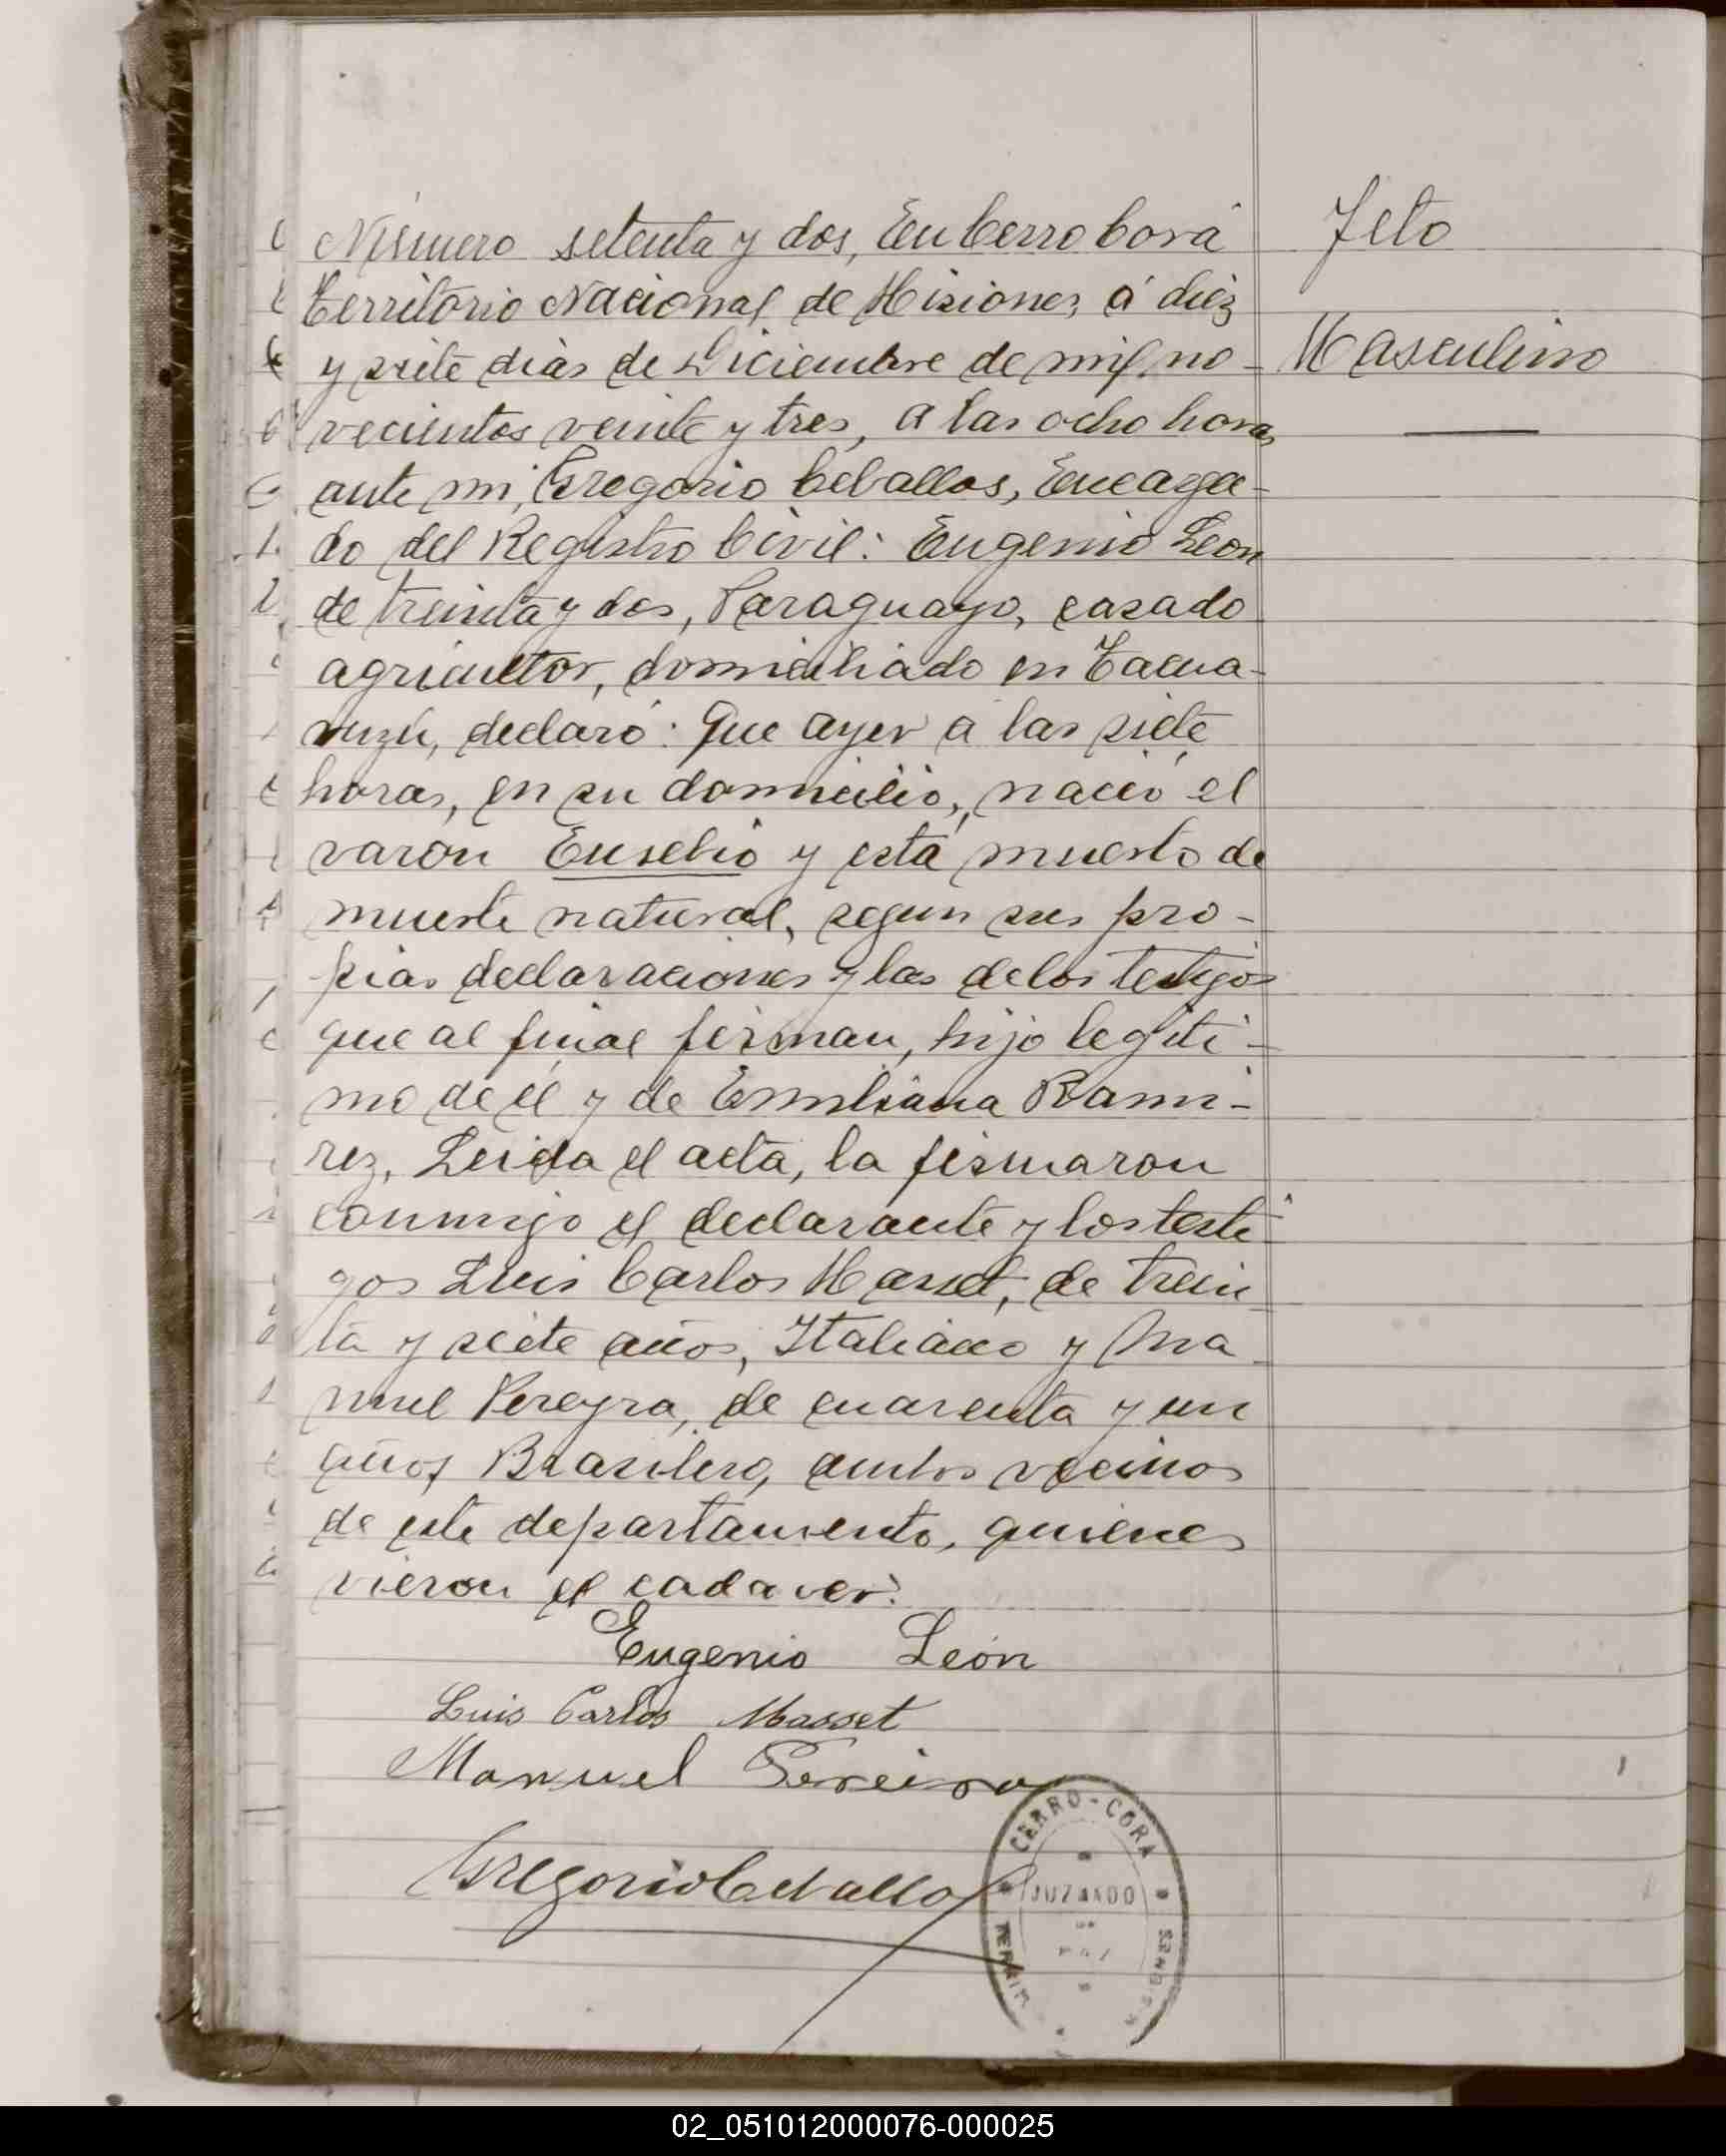 Número setenta y dos, En Cerro Corá
Territorio Nacional de Misiones, á diez
y siete dias de Diciembre de mil no-
vecientos veinte y tres, a las ocho horas
ante mi, Gregorio Ceballos, Encarga-
do del Registro Civil: Eugenio Leon
de treinta y dos, Paraguayo, casado
agricultor, domiciliado en Tacua-
ruzú, declaró: Que ayer a las siete
horas, en su domicilio, nació el
varon Eusebio y está muerto de
muerte natural, segun sus pro-
pias declaraciones y las de los testigos
que al final firman, hijo legiti-
mo de él y de Emiliana Rami-
rez, Leida el acta, la firmaron
conmigo el declarante y los testi-
gos Luis Carlos Masset, de trein
ta y siete años, Italiano y Ma
nuel Pereyra, de cuarenta y un
años Brasilero, ambos vecinos
de este departamento, quienes
vieron el cadaver.
Eugenio León
Luis Carlos Masset
Manuel Pereira
Gregorio Ceballos
Feto
Masculino
CERRO-CORA
JUZGADO
02_051012000076-000025